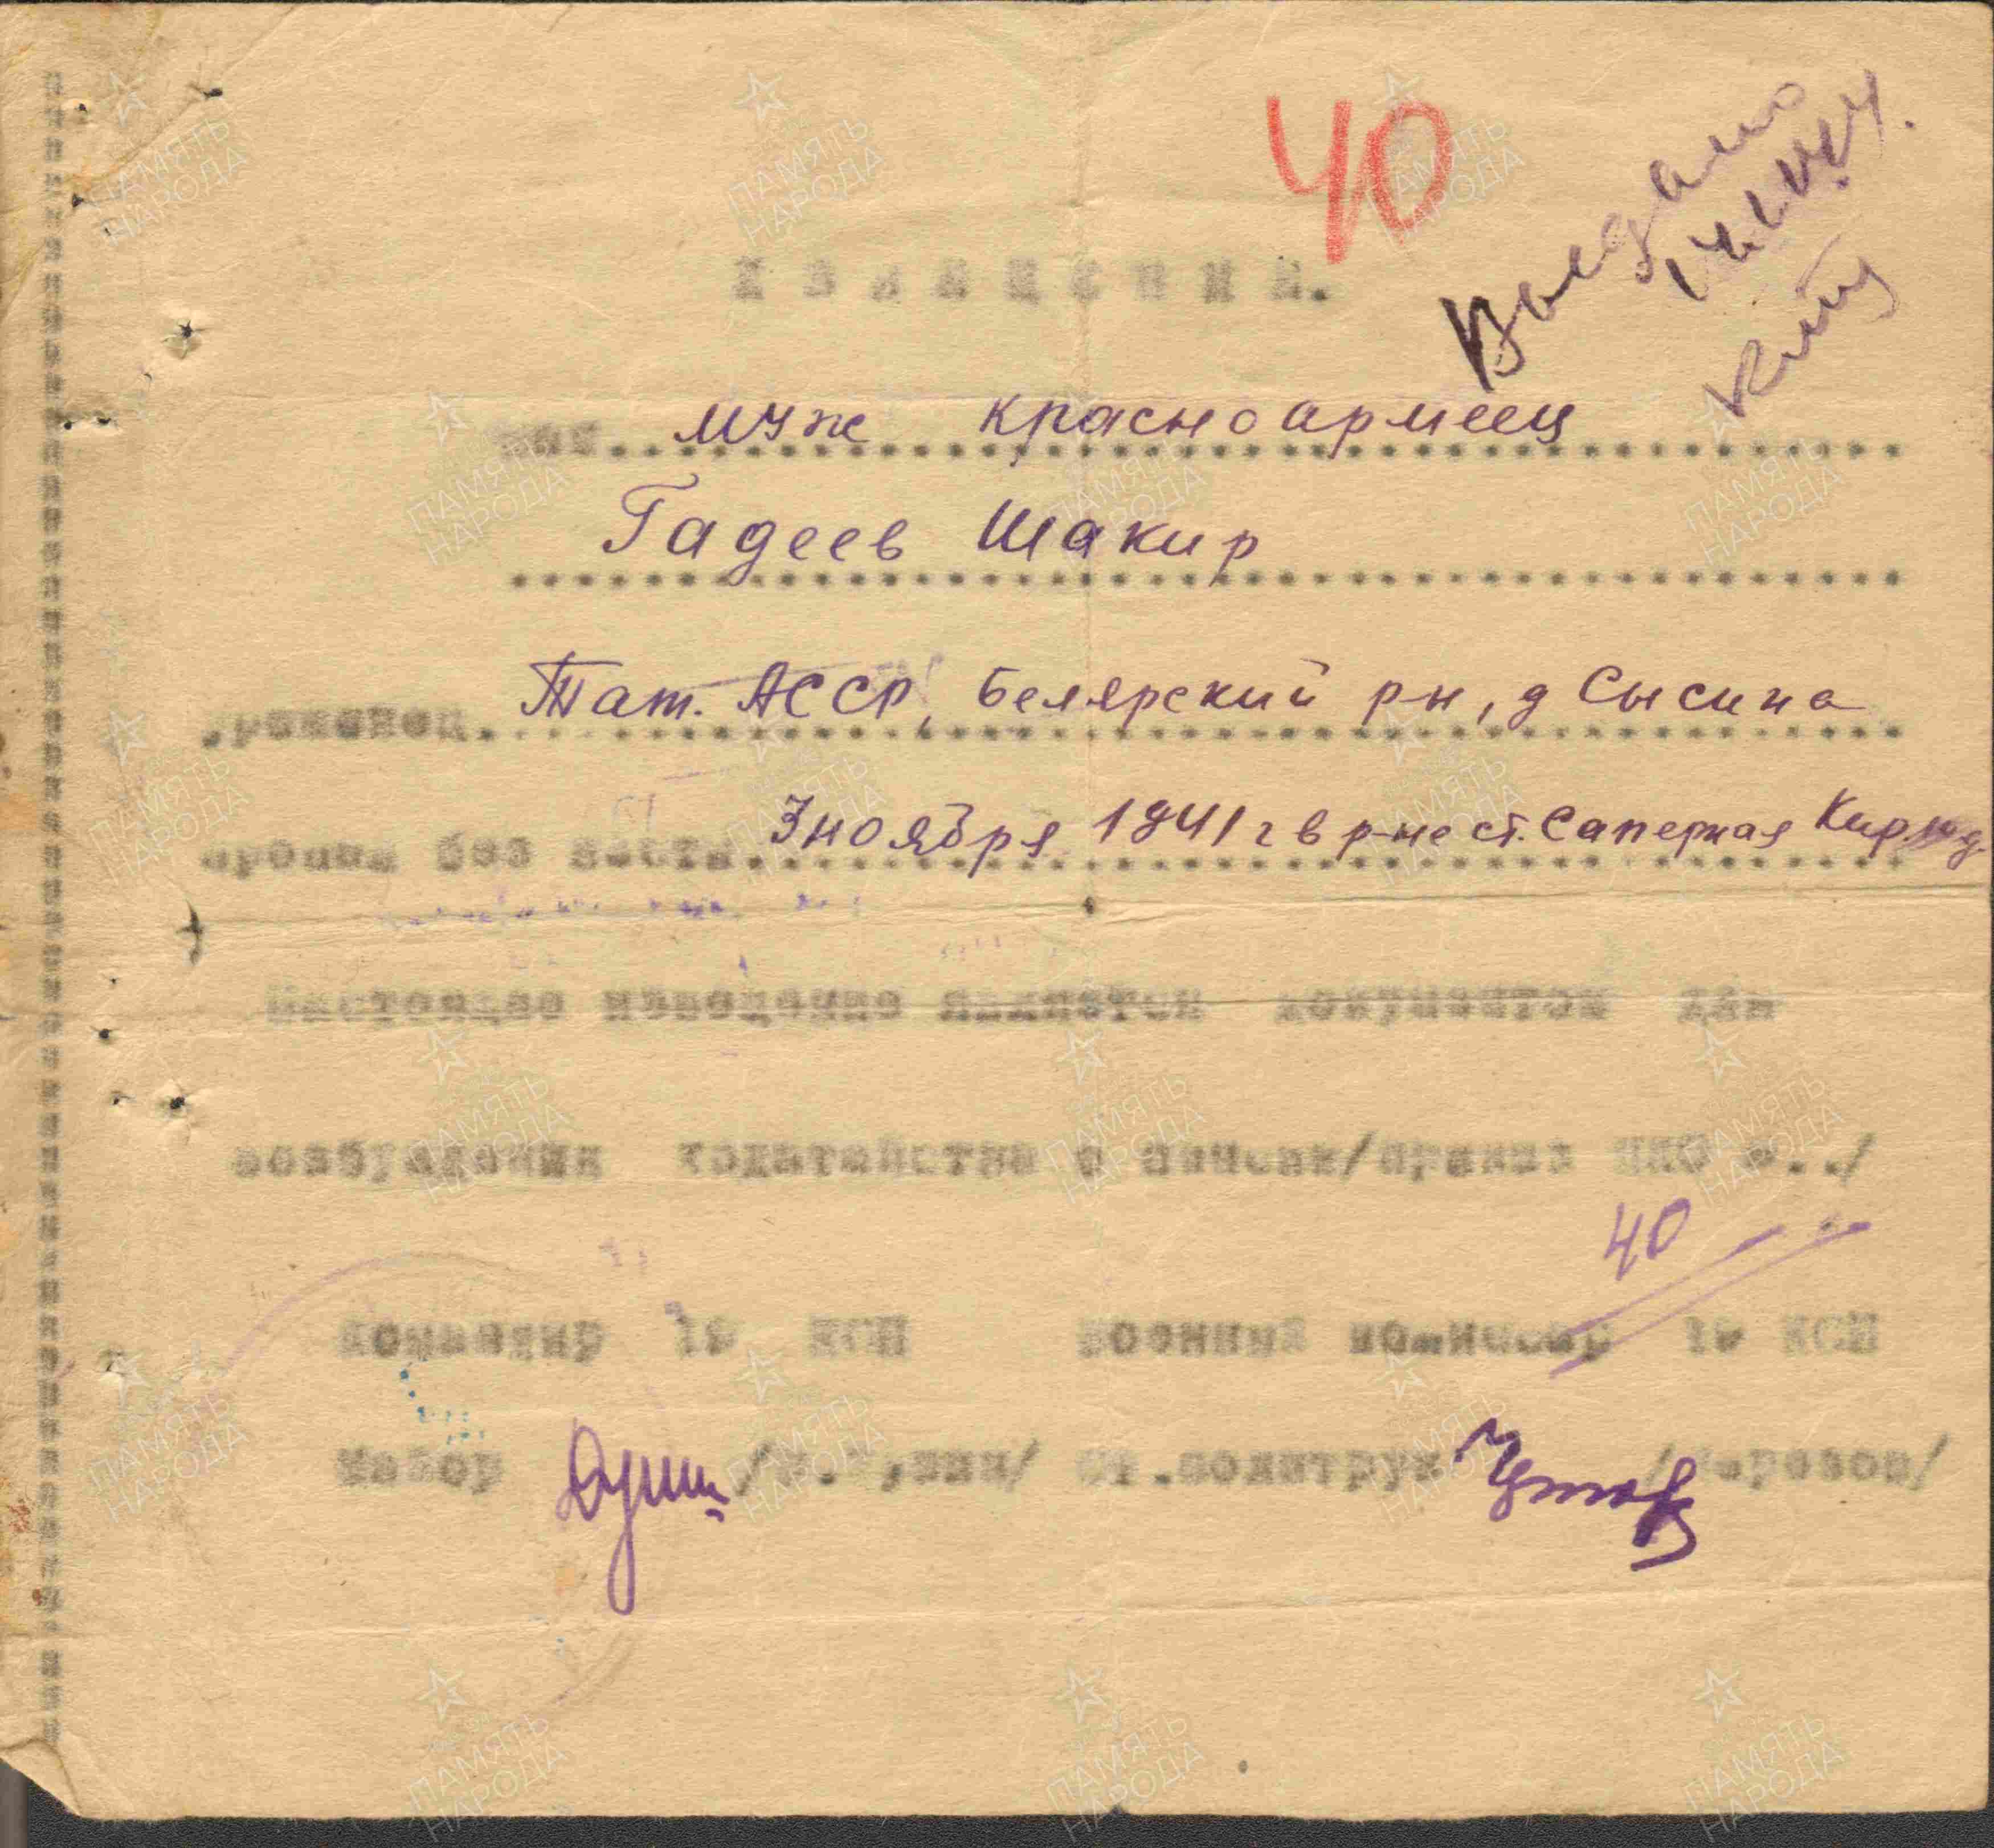 40
Выдано
ИЗВЕЩЕНИЕ.
Ваш муж красноармеец
Гадеев Шакир
уроженец Тат. АССР, Белярский р-н, д Сысина
пропал без вести 3 ноября 1941 г в р-не ст. Саперная
Настоящее извещение является документом для
возбуждения ходатайства о пенсии/приказ НКО №../
40
Командир 19 КСП военный комиссар 19 КСП
Майор ст.политрук
ПАМЯТЬ НАРОДА